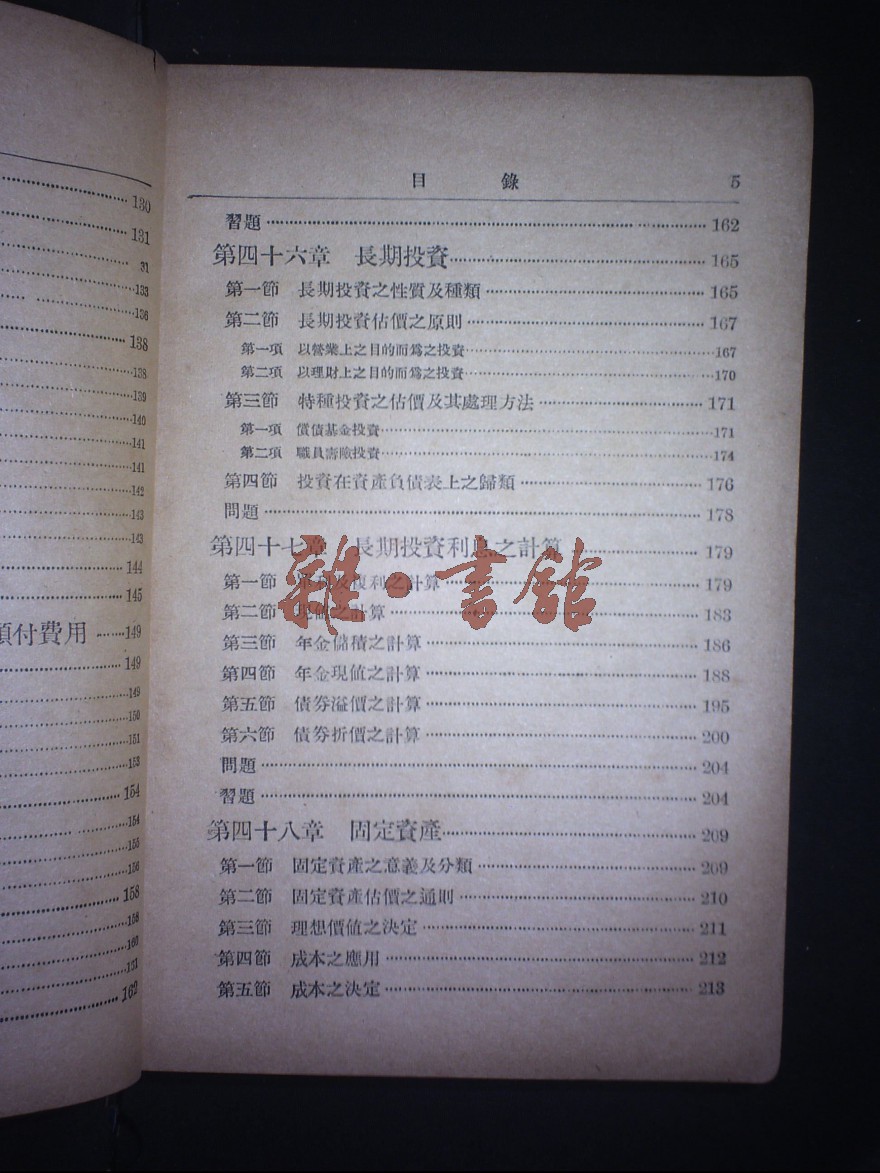 130
131
31
133
136
138
138
139
140
141
141
142
143
143
144
145
付費用 149
149
149
150
151
153
154
154
155
156
158
158
160
131
162
目 錄 5
習題 162
第四十六章 長期投資 165
第一節 長期投資之性質及種類 165
第二節 長期投資估價之原則 167
第一項 以營業上之目的而爲之投資 167
第二項 以理財上之目的而爲之投資 170
第三節 特種投資之估價及其處理方法 171
第一項 償債基金投資 171
第二項 職員壽險投資 174
第四節 投資在資產負債表上之歸類 176
問題 178
第四十七章 長期投資利息之計算 179
第一節 單利及複利之計算 179
第二節 現値之計算 183
第三節 年金儲積之計算 186
第四節 年金現値之計算 188
第五節 債券溢價之計算 195
第六節 債券折價之計算 200
問題 204
習題 204
第四十八章 固定資產 209
第一節 固定資產之意義及分類 209
第二節 固定資產估價之通則 210
第三節 理想價値之決定 211
第四節 成本之應用 212
第五節 成本之決定 213
雜·書館